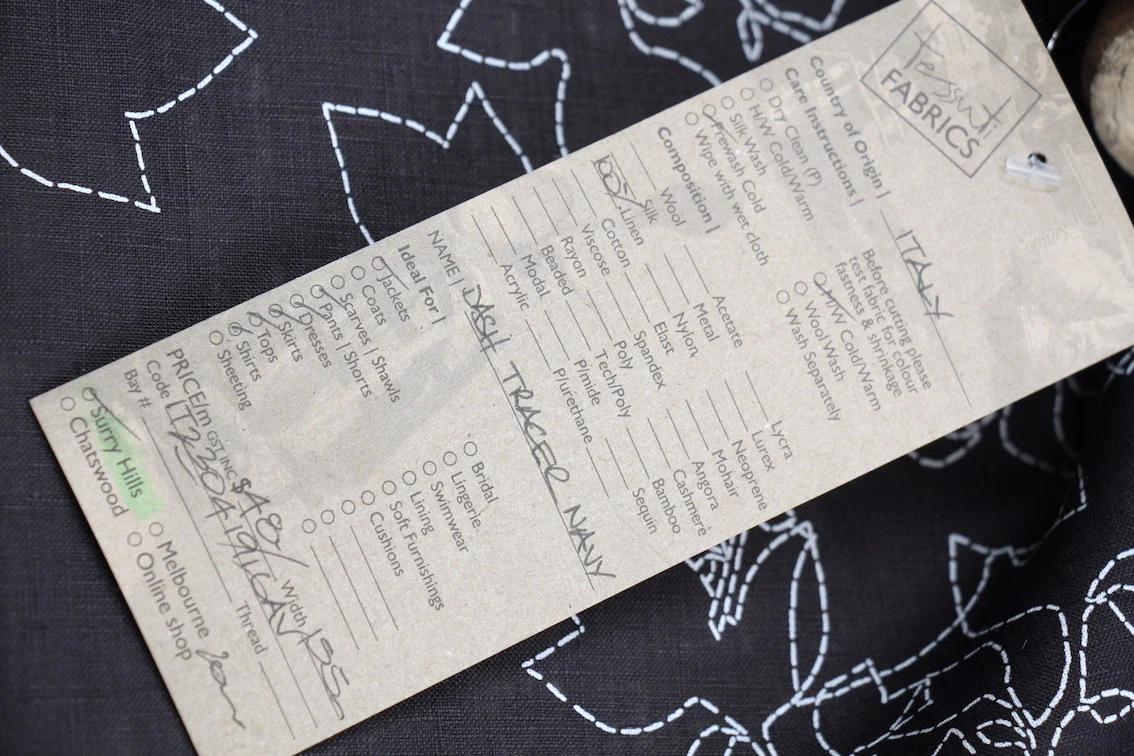 Tessuti
FABRICS
Country of Origin | ITALY
Care Instructions |
Dry Clean (P)
H/W Cold/Warm
Silk Wash
Prewash Cold
Wipe with wet cloth
Before cutting please
test fabric for colour
fastness & shrinkage
M/W Cold/Warm
Wool Wash
Wash Separately
Composition |
Wool
Silk
100% Linen
Cotton
Viscose
Rayon
Beaded
Modal
Acrylic
Acetate
Metal
Nylon
Elast
Spandex
Poly
Tech/Poly
P/mide
P/urethane
Lycra
Lurex
Neoprene
Mohair
Angora
Cashmere
Bamboo
Sequin
NAME | DASH TRACER NAVY
Ideal For |
Jackets
Coats
Scarves | Shawls
Pants | Shorts
Dresses
Skirts
Tops
Shirts
Sheeting
Bridal
Lingerie
Swimwear
Lining
Soft Furnishings
Cushions
PRICE/m GST INC $48/ Width 135
Code
Bay # Thread
Surry Hills Melbourne
Chatswood Online shop